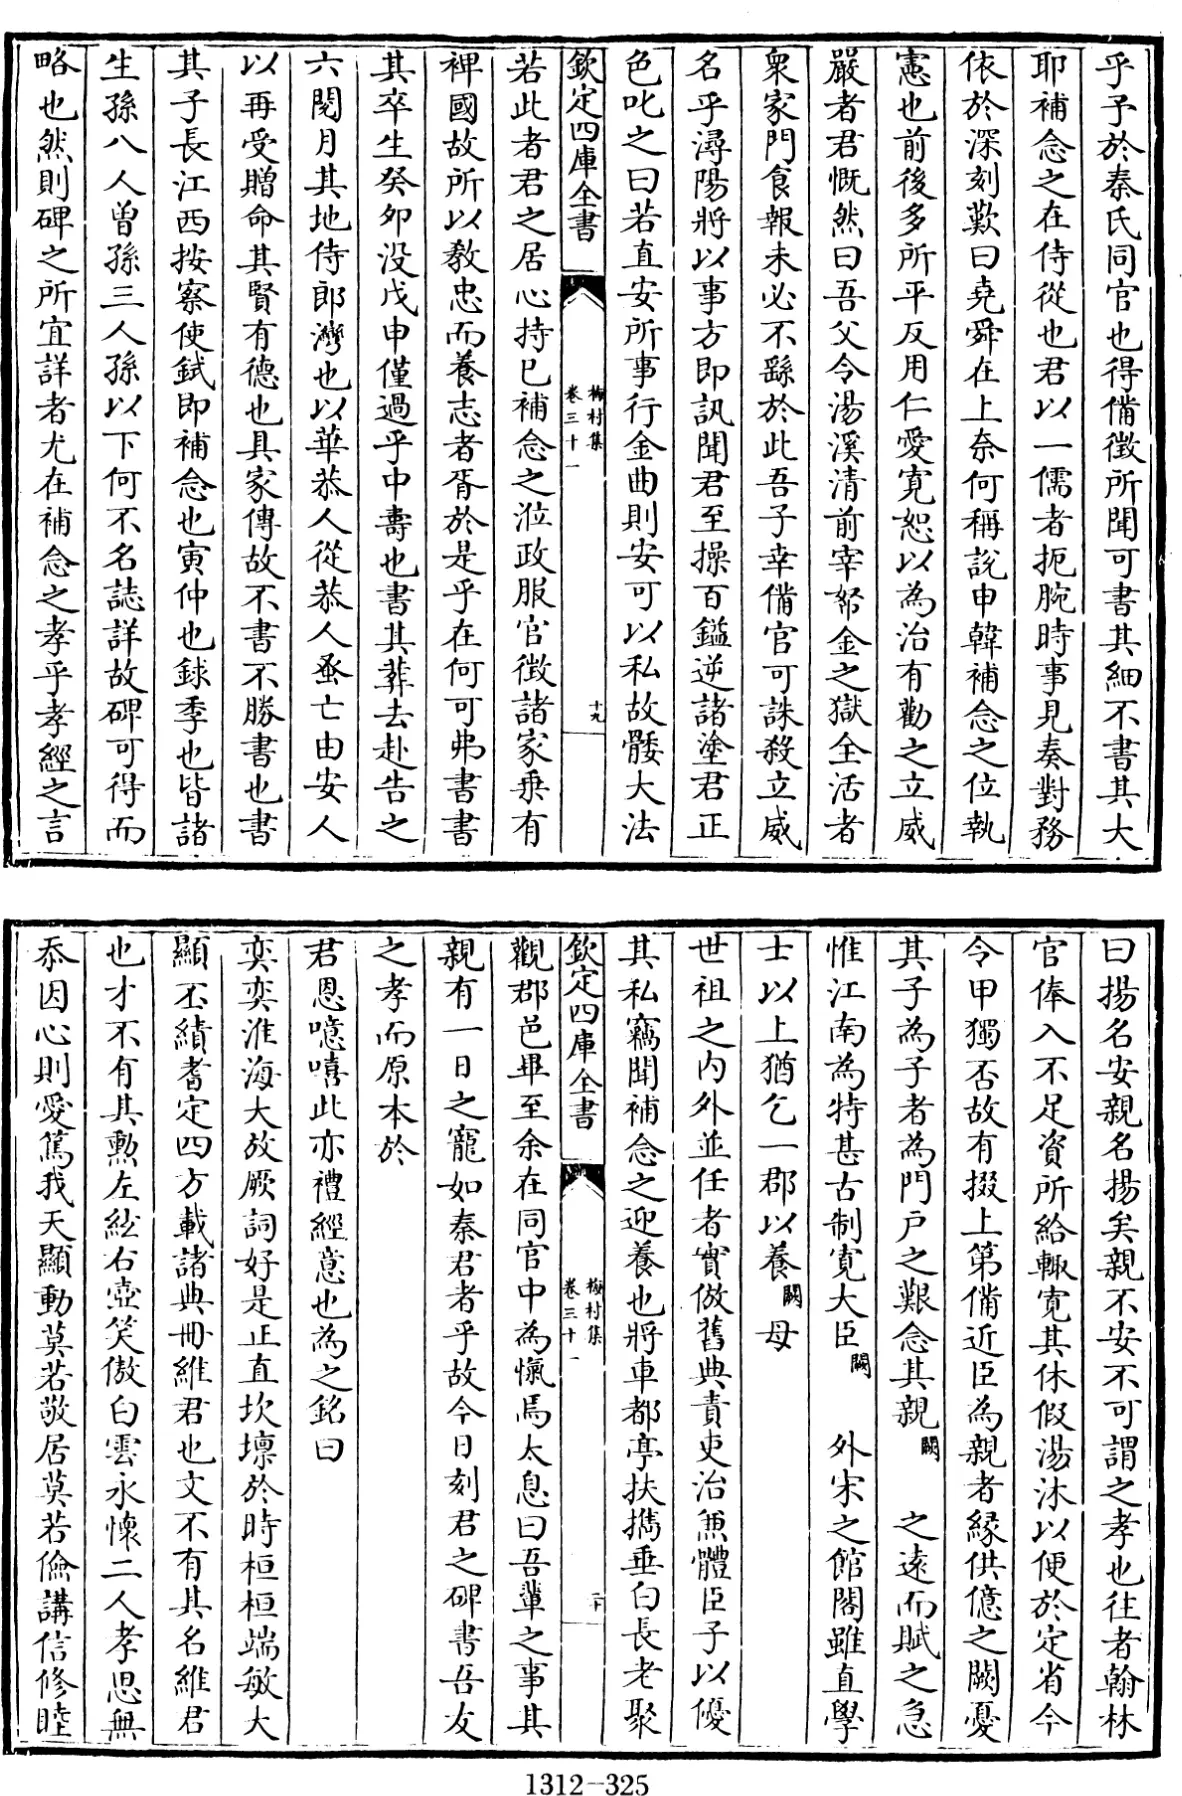 乎予於秦氏同官也得備徵所聞可書其細不書其大
耶補念之在侍從也君以一儒者扼腕時事見奏對務
依於深刻歎曰堯舜在上奈何稱說申韓補念之位執
憲也前後多所平反用仁愛寛恕以為治有勸之立威
嚴者君慨然曰吾父令湯溪清前宰帑金之獄全活者
衆家門食報未必不繇於此吾子幸備官可誅殺立威
名乎潯陽將以事方即訊聞君至操百鎰逆諸塗君正
色叱之曰若直安所事行金曲則安可以私故骫大法
欽定四庫全書
梅村集
卷三十一
十九
若此者君之居心持已補念之涖政服官徴諸家乗有
裨國故所以教忠而養志者胥於是乎在何可弗書書
其卒生癸夘没戊申僅過乎中壽也書其葬去赴告之
六閱月其地侍郎灣也以華恭人從恭人蚤亡由安人
以再受贈命其賢有德也具家傳故不書不勝書也書
其子長江西按察使鉽即補念也寅仲也銶季也皆諸
生孫八人曾孫三人孫以下何不名誌詳故碑可得而
略也然則碑之所宜詳者尤在補念之孝乎孝經之言
曰揚名安親名揚矣親不安不可謂之孝也往者翰林
官俸入不足資所給輙寛其休假湯沐以便於定省今
令甲獨否故有掇上第備近臣為親者緣供億之闕憂
其子為子者為門戸之艱念其親闕之遠而賦之急
惟江南為特甚古制寛大臣闕外宋之館閣雖直學
士以上猶乞一郡以養闕母
世祖之内外並任者實倣舊典責吏治兼體臣子以優
其私竊聞補念之迎養也將車都亭扶攜垂白長老聚
欽定四庫全書
梅村集
卷三十一
二十
觀郡邑畢至余在同官中為愾焉太息曰吾輩之事其
親有一日之寵如秦君者乎故今日刻君之碑書吾友
之孝而原本於
君恩噫嘻此亦禮經意也為之銘曰
奕奕淮海大放厥詞好是正直坎壈於時桓桓端敏大
顯丕績耆定四方載諸典冊維君也文不有其名維君
也才不有其勲左絃右壺笑傲白雲永懷二人孝思無
忝因心則愛篤我天顯動莫若敬居莫若儉講信修睦
1312-325